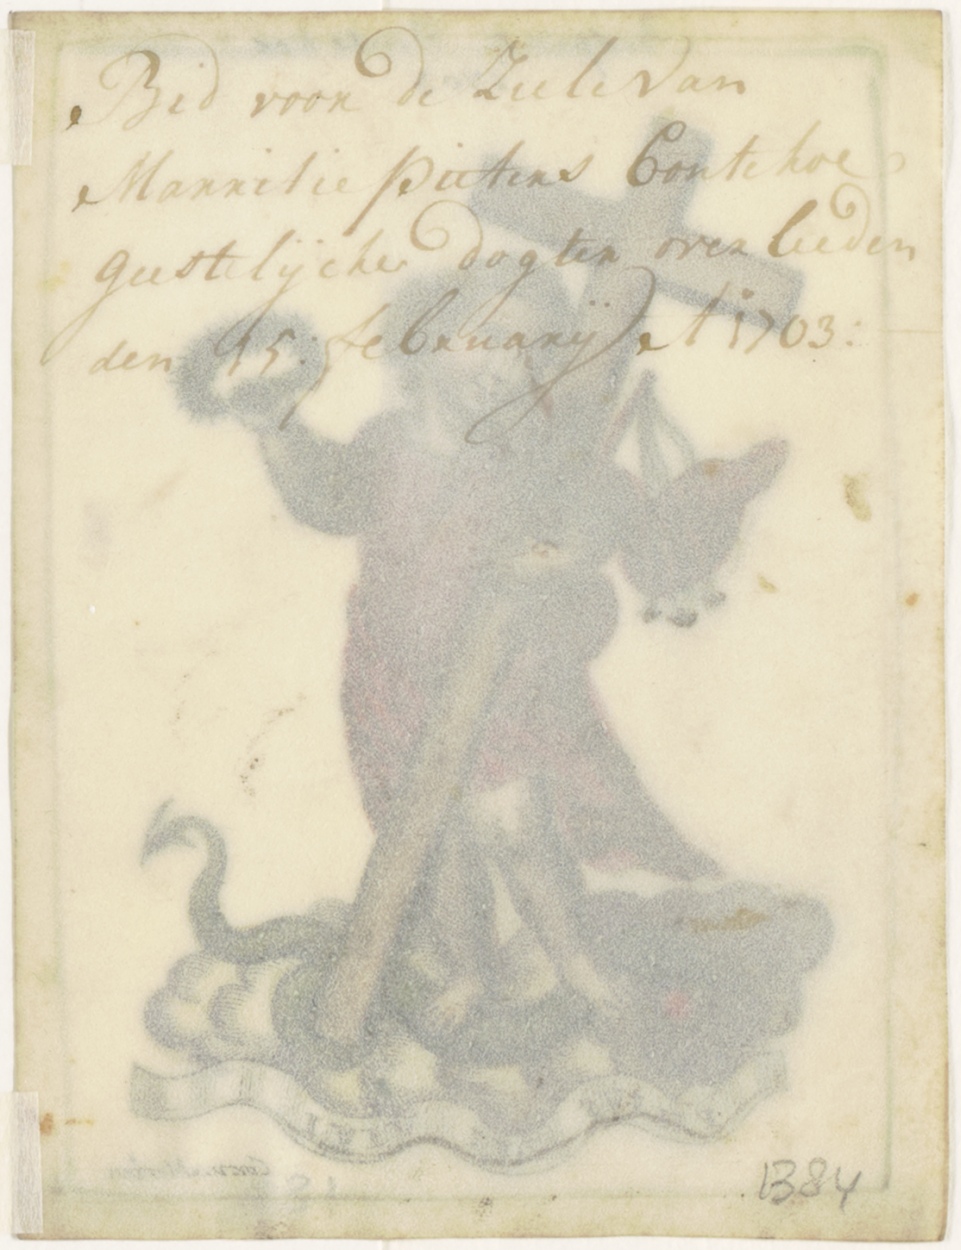 Bid voor de Ziele van
Marritie pieters Contehoe
geestelijcke dogter overleeden
den 15: februarij A° 1703:
1384